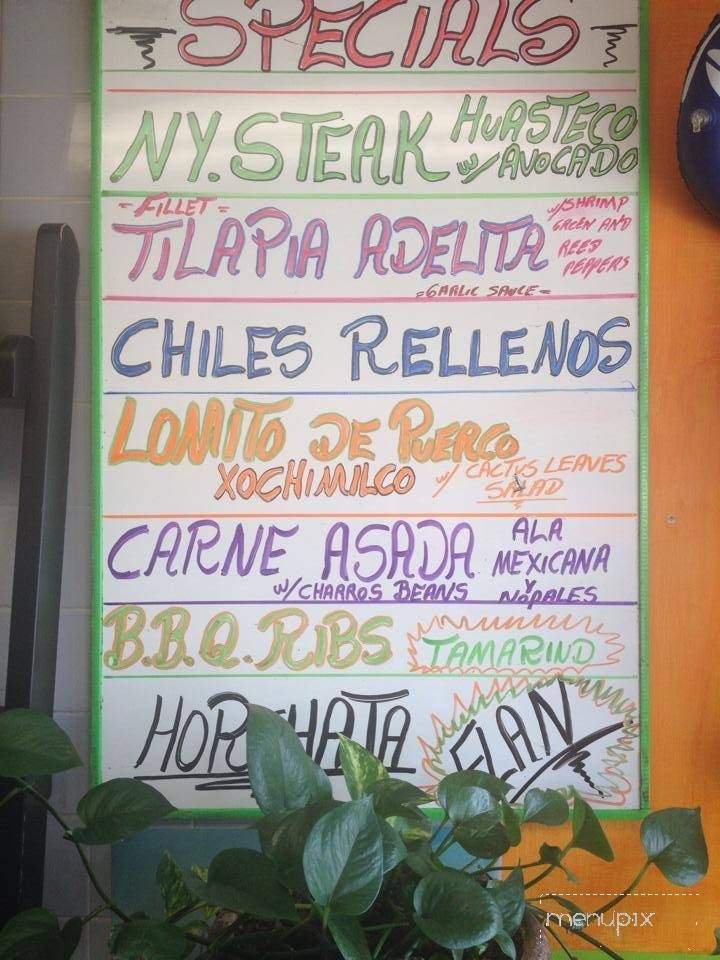 SPECIALS
NY. STEAK HUASTECO
w/ AVOCADO
-FILLET-
TILAPIA ADELITA w/ SHRIMP
GREEN AND
REED
PEPPERS
=GARLIC SAUCE=
CHILES RELLENOS
LOMITO DE PUERCO
XOCHIMILCO w/ CACTUS LEAVES
SALAD
CARNE ASADA ALA
MEXICANA
w/ CHARROS BEANS Y
NOPALES
B.B.Q. RIBS TAMARIND
HORCHATA FLAN
menupix